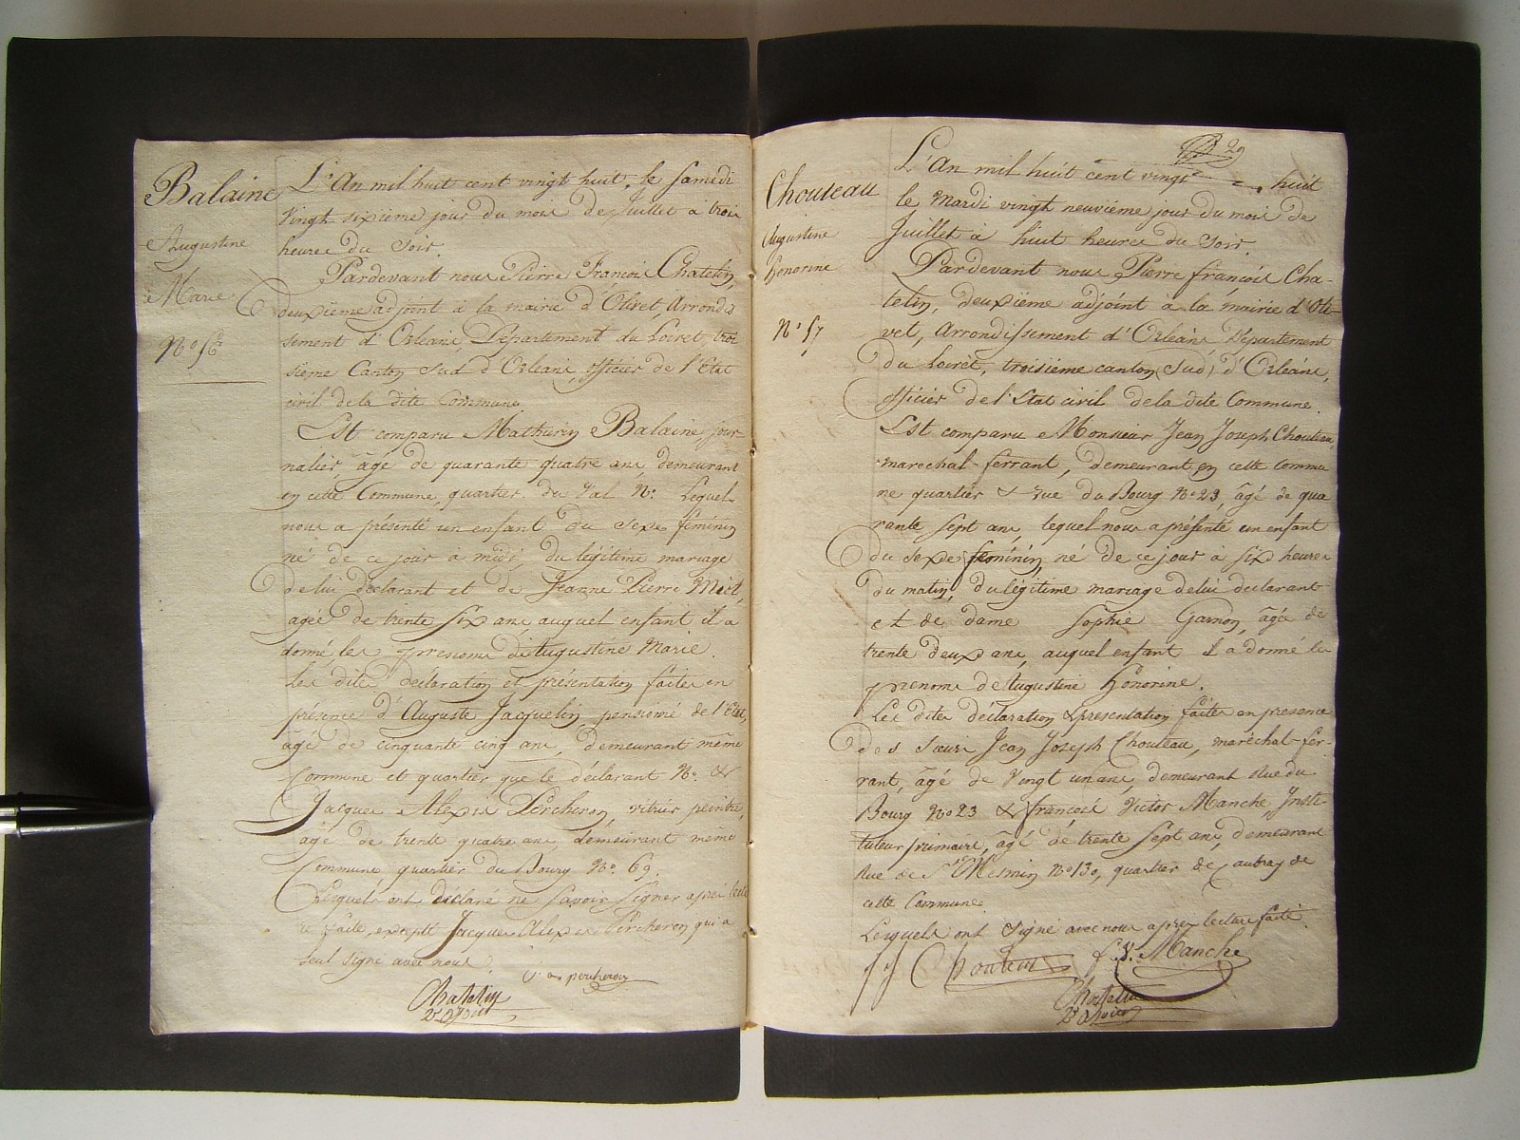 Balaine
Augustine
Marie
N°
L'An mil huit cent vingt huit, le samedi
vingt sixiième jour du mois de Juillet à trois
heures du soir.
Pardevant nous Pierre François Chatelin,
deuxiième adjoint à la mairie d'Olivet, Arrondis
sement d'Orléans, Département du Loiret, troi
sième Canton Sud d'Orléans, officier de l'Etat
civil de la dite Commune
Est comparu Mathurin Balaine jour-
nalier, âgé de quarante quatre ans, demeurant
en cette Commune, quartier du Val N°. Lequel
nous a présenté un enfant du sexe féminin
né de ce jour à midi du légitime mariage
de lui déclarant et de Jeanne Pierre
agée de trente six ans auquel enfant il a
donné les prenoms d'Augustine Marie.
Les dites déclaration et présentation faites en
présence d'Auguste Jacquelin pensioné de l'Etat,
âgé de cinquante cinq ans, demeurant même
Commune et quartier, que le déclarant N°. &
Jacques Alexis Percheron, vitrier peintre,
âgé de trente quatre ans, demeurant même
Commune, quartier du Bourg N°. 69.
Lesquels ont déclaré ne savoir signer après lectu
re faite, excepté Jacques Alexis Percheron qui a
seul signé avec nous.
percheron
Chatelin
29
Chouteau
Augustine
Honorine
N° 57
L'An mil huit cent vingt huit
le Mardi vingt neuvième jour du mois de
Juillet à huit heures du soir.
Pardevant nous Pierre françois Cha-
telin, deuxième adjoint à la mairie d'Oli-
vet, Arrondissement d'Orléans Département
du Loiret, troisiieme canton (Sud) d'Orléans,
officier de l'Etat civil de la dite Commune.
Est comparu Monsieur Jean Joseph Chouteau,
marechal-ferrant, demeurant en cette Commu
ne quartier & rue du Bourg N° 23, âgé de qua
rante sept ans, lequel nous a présenté un enfant
du sexe féminin, né de ce jour à six heures
du matin, du légitime mariage de lui déclarant
et de dame Sophie Garnon, âgée de
trente deux ans, auquel enfant il a donné les
prenoms d'Augustine honorine.
Les dites déclaration & présentation faites en presence
des sieurs Jean Joseph Chouteau, maréchal-fer-
rant, âgé de vingt un ans, demeurant Rue du
Bourg N° 23 & françois Victor Manche Insti-
tuteur primaire, âgé de trente sept ans, demeurant
Rue de St Mesmin N° 130, quartier de Caubray de
cette Commune.
Lesquels ont signé avec nous après lecture faite.
J J Chouteau f. V. Manche
Chatelin